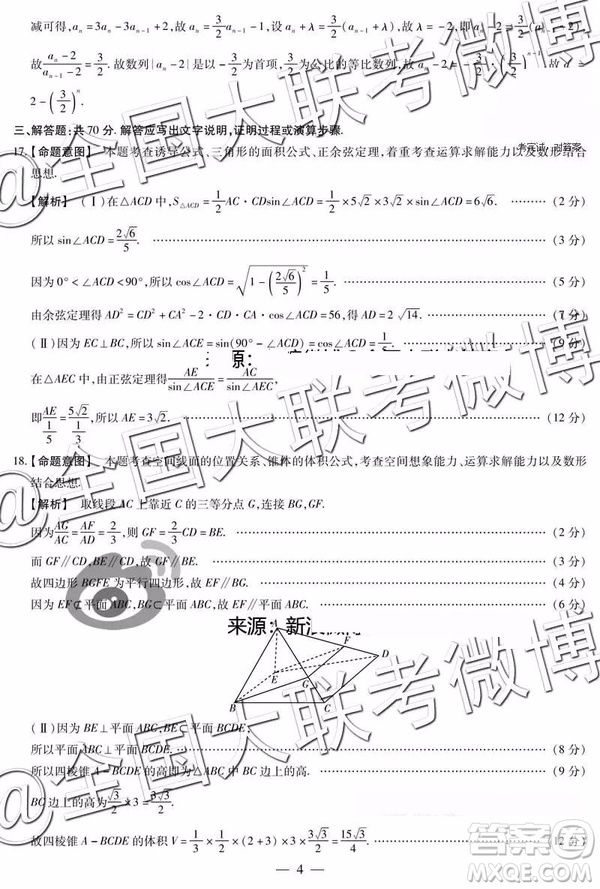 减可得, aₙ=3aₙ-3aₙ₋₁+2,故 aₙ=3/2 aₙ₋₁-1,设 aₙ+λ=3/2(aₙ₋₁+λ),即 aₙ=3/2 aₙ₋₁
故 aₙ-2=3/2(aₙ₋₁-2).故数列{aₙ-2}是以 为首项,3/2 为公比的等比数列,故 aₙ-2=
2-(3/2)ⁿ.
三、解答题:共70分.解答应写出文字说明,证明过程或演算步骤.
17.【命题意图】 本题考查诱导公式、三角形的面积公式、正余弦定理,着重考查运算求解能力以及数形结合
思想.
【解析】 (Ⅰ)在△ACD中,S△ACD=1/2 AC·CDsin∠ACD=1/2×5√2×3√2×sin∠ACD=6√6. (2分)
所以 sin∠ACD=2√6/5. (3分)
因为0°<∠ACD<90°,所以 cos∠ACD=√(1-(2√6/5)²)=1/5. (5分)
由余弦定理得 AD²=CD²+CA²-2·CD·CA·cos∠ACD=56,得 AD=2√14. (7分)
(Ⅱ)因为 EC⊥BC,所以 sin∠ACE=sin(90°-∠ACD)=cos∠ACD=1/5. (9分)
原:
在△AEC中,由正弦定理得 AE/sin∠ACE=AC/sin∠AEC,
即 AE/(1/5)=5√2/(1/3),所以 AE=3√2. (12分)
18.【命题意图】 本题考查空间线面的位置关系、锥体的体积公式,考查空间想象能力、运算求解能力以及数形
结合思想.
【解析】 取线段AC上靠近C的三等分点G,连接BG,GF.
因为 AG/AC=AF/AD=2/3,则 GF=2/3 CD=BE. (2分)
而 GF∥CD,BE∥CD,故 GF∥BE. (3分)
故四边形BGFE为平行四边形,故 EF∥BG. (4分)
因为 EF⊄平面ABC,BG⊂平面ABC,故 EF∥平面ABC. (6分)
来源:新浪微
F
D
E
G
B
C
(Ⅱ)因为 BE⊥平面ABC,BE⊂平面BCDE,
所以平面ABC⊥平面BCDE, (8分)
所以四棱锥A-BCDE的高即为△ABC中BC边上的高. (9分)
BC边上的高为 √3/2×3=3√3/2.
故四棱锥A-BCDE的体积 V=1/3×1/2×(2+3)×3×3√3/2=15√3/4. (12分)
— 4 —
@全国大联考微博
@全国大联考微博
@全国大联考微博
答案圈
MXEQ.COM